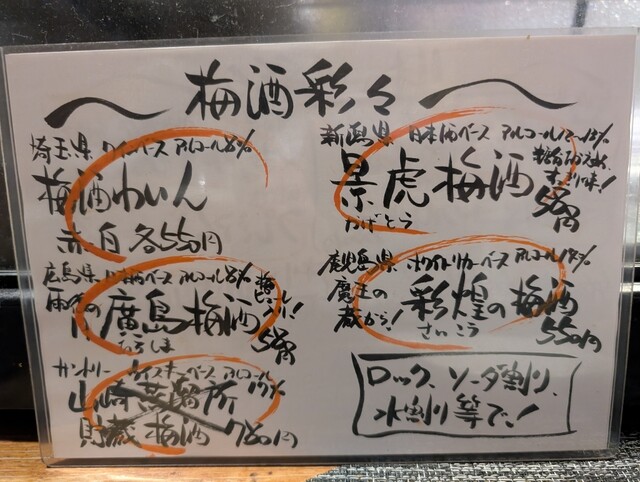 梅酒彩々
埼玉県 ワインベース アルコール8%
梅酒わいん
赤・白 各550円
広島県 日本酒ベース アルコール8%
廣島梅酒
ひろしま
サントリー ウイスキーベース アルコール17%
山崎蒸留所
貯蔵梅酒 780円
新潟県 日本酒ベース アルコール12〜13%
糖分おさえめ、
すっきり味!
景虎梅酒
かげとら
鹿児島県 ホワイトリカーベース アルコール14%
魔王の
蔵から!
彩煌の梅酒
さいこう
550円
ロック、ソーダ割り、
水割り等で!